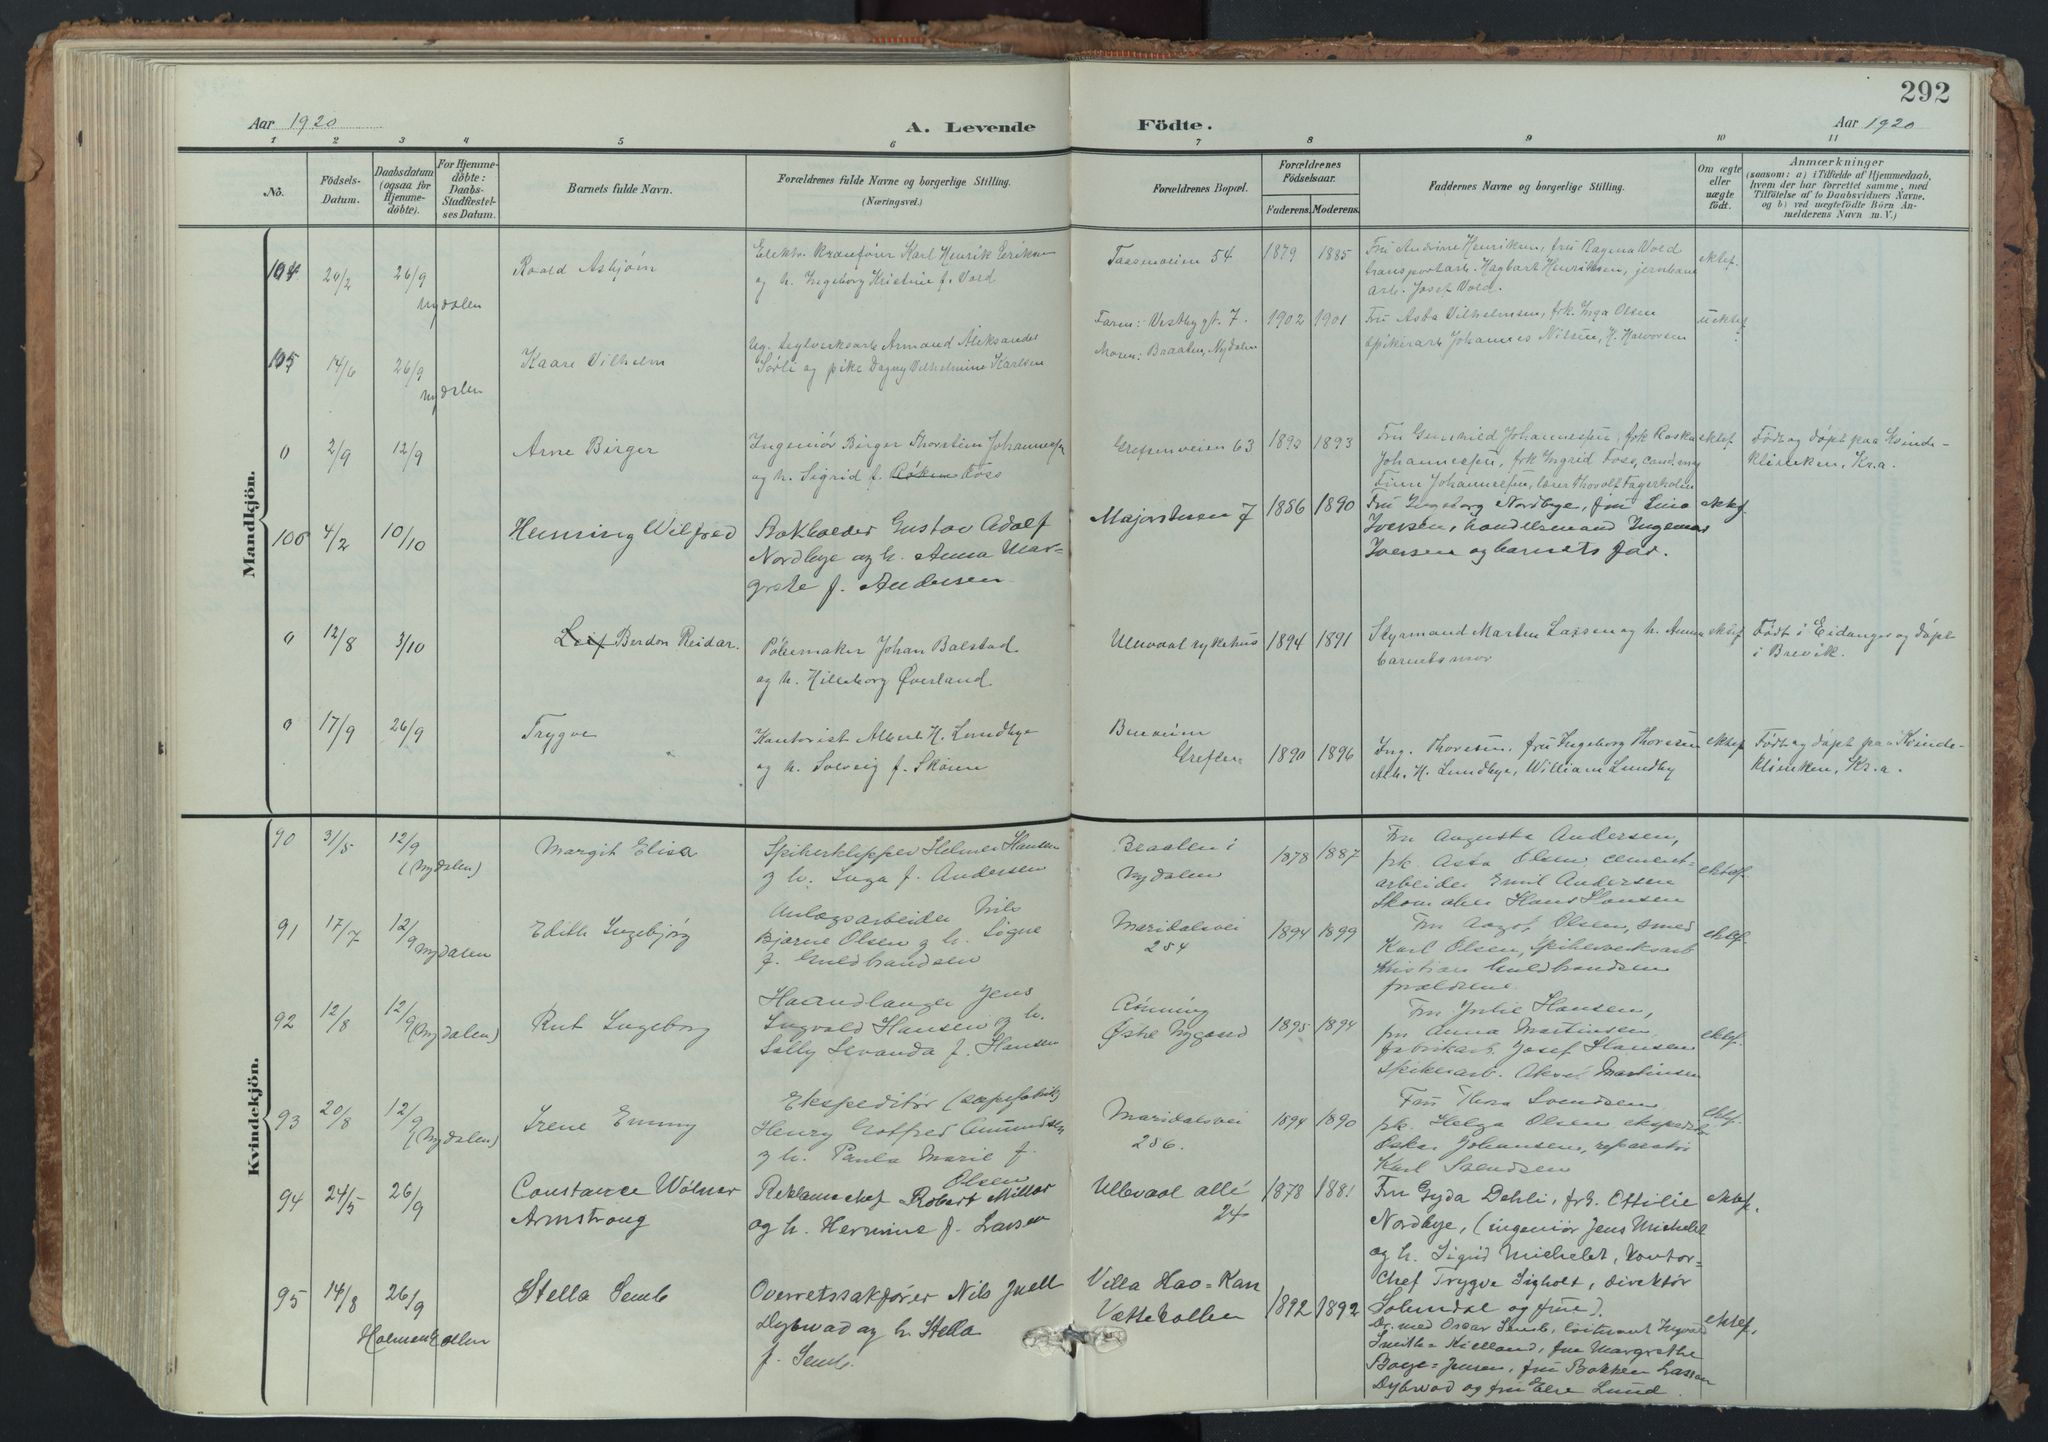 292
Aar 1920
A. Levende Födte.
Aar 1920
1 2 3 4 5 6 7 8 9 10 11
No.
Födsels-
Datum.
Daabsdatum
(ogsaa for
Hjemme-
döbte).
For Hjemme-
döbte:
Daabs-
Stadfæstel-
ses Datum.
Barnets fulde Navn.
Forældrenes fulde Navne og borgerlige Stilling.
(Næringsvei.)
Forældrenes Bopæl.
Forældrenes
Födselsaar.
Faderens. Moderens.
Faddernes Navne og borgerlige Stilling.
Om ægte
eller
uægte
födt.
Anmærkninger
(saasom: a) i Tilfælde af Hjemmedaab,
hvem der har forrettet samme, med
Tilföielse af to Daabsvidners Navne,
og b) ved uægtefödte Börn An-
melderens Navn m. V.)
Mandkjön.
104 20/2 26/9
Nydalen
Roald Asbjörn
Karl Henrik Eriksen
og h. Ingeborg Kristine f. Vold
Taasenveien 54
1879 1885
Fru Andrine Henriksen, fru Ragna Vold
transportarb. Hagbart Henriksen, jernbane
arb. Josef Vold.
ektef.
105 14/6 26/9
Nydalen
Kaare Vilhelm
Ug. teglverksarb Armand Aleksander
Sörli og pike Dagny Vilhelmine Karlsen
Faren: Vestbygt. 7.
Moren: Braaten, Nydalen
1902 1901
Fru Asta Vilhelmsen, frk. Inga Olsen
spikerarb Johannes Nilsen, H. Halvorsen
uektef
0 2/9 12/9
Arne Birger
Ingeniör Birger Thorstein Johannessen
og h. Sigrid f. Foss
Grefsenveien 63
1893
Fru Gunhild Johannessen, frk
Johannessen, frk Ingrid Foss, cand.
Finn Johannessen, Thorolf Fagerholm
ektef
Födt og döpt paa Kvinde-
kliniken, Kr.a.
106 4/2 10/10
Henning Wilfred
Bokholder Gustav Adolf
Nordbye og h. Anna Mar-
grete f. Andersen
Majorstuen 7
1886 1890
Fru Ingeborg Nordbye, fru Lina
Iversen, handelsmand Ingemar
Iversen og barnets far.
ektef
0 12/8 3/10
Leif Berdon Reidar.
Pölsemaker Johan Balstad
og h. Hildeborg Överland
Ullevaal sykehus
1894 1891
Styrmand Marten Lassen og h. Anna
barnets mor
ektef
Födt i Eidanger og döpt
i Brevik.
0 17/9 26/9
Trygve
Kontorist Albert H. Lundbye
og h. Solveig f. Skören
Grefsen
1890 1896
Ing. Thoresen, fru Ingeborg Thoresen
Alb. H. Lundbye, William Lundby
ektef
Födt og döpt paa Kvinde-
kliniken, Kr.a.
Kvindekjön.
90 31/5 12/9
(Nydalen)
Margit Elisa
Spikerklipper Helmer Hansen
g h. Inga f. Andersen
Braaten i
Nydalen
1878 1887
Fru Augusta Andersen,
frk. Asta Olsen, cement-
arbeider Emil Andersen
Skomaker Hans Hansen
ektef.
91 17/7 12/9
Nydalen
Edith Ingebjörg
Anlægsarbeider Nils
Bjarne Olsen g h. Signe
f. Guldbrandsen
Maridalsvei
254
1894 1899
Fru Olsen, smed
Karl Olsen, Spikerverksarb
Kristian Guldbrandsen
forældrene.
ektef.
92 12/8 12/9
(Nydalen)
Rut Ingeborg
Haandlanger Jens
Ingvald Hansen g h.
Sally Sevanda f. Hansen
Rönning
Östre Nygaard
1895 1894
Fru Julie Hansen,
fru Anna Martinsen
fabrikarb. Josef Hansen
Spikerarb. Martinsen
ektef.
93 20/8 12/9
(Nydalen)
Irene Emmy
Ekspeditör (sæpefabrik)
Henry Gotfred Amundsen
g h. Paula Marie f.
Olsen
Maridalsvei
256.
1894 1890
Fru Thora Svendsen
frk. Helga Olsen, ekspeditör
Oskar Johansen, reparatör
Karl Svendsen
ektef.
94 24/5 26/9
Constance Wölner
Armstrong
Reklamechef Robert Millar
og h. Hermine f. Larsen
Ullevaal allé
24
1878 1881
Fru Gyda Dehli, frk. Ottilie
Nordbye, (ingeniör Jens Michelet
og h. Sigrid Michelet, kontor-
chef Trygve Sigholt, direktör
Solundal og frue).
ektef.
95 14/8 26/9
Holmenkollen
Stella Semb
Overretssakförer Nils Juell
Dybwad og h. Stella
f. Semb.
Villa Hao-Kan
Vettekollen
1892 1892
Dr. med Oscar Semb, löitnant Ingvald
Smith-Kielland, frue Margrethe
Boye-Jensen, fru Bokken Lasson
Dybwad og fru Else Lund.
ektef.